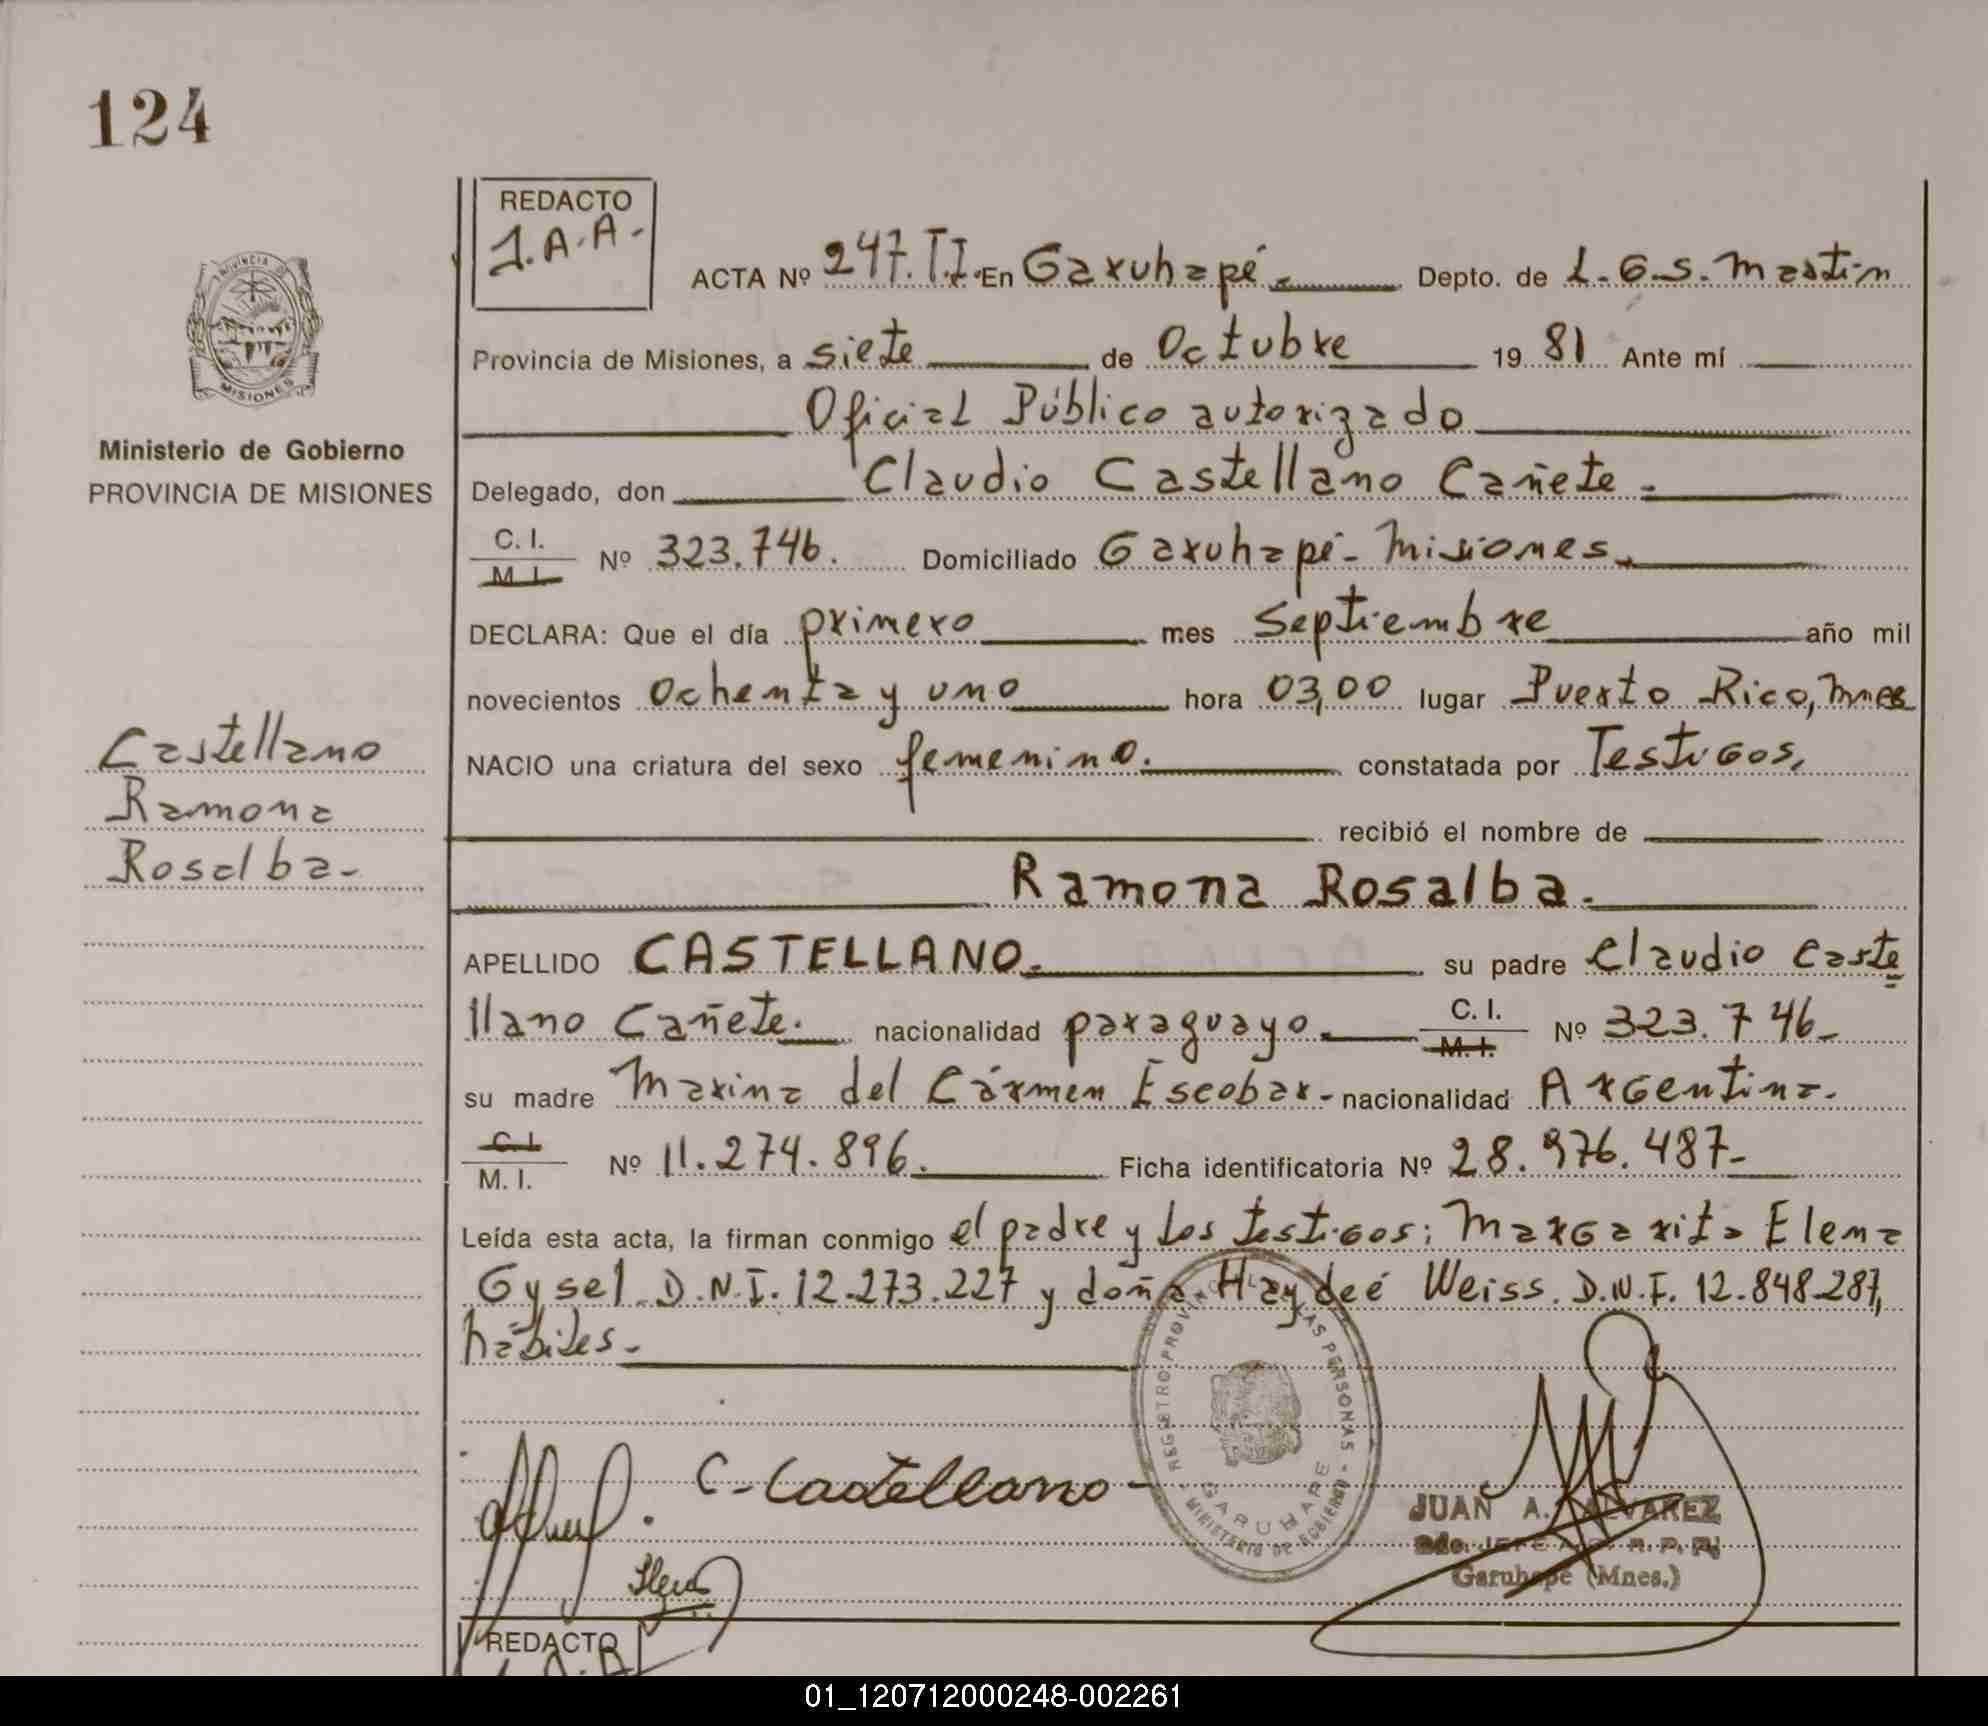 124
REDACTO
J.A.A.
ACTA Nº 247.T.I. En Garuhapé. Depto. de L.G.S. Martin
Provincia de Misiones, a siete de Octubre 1981 Ante mí
Oficial Público autorizado
Delegado, don Claudio Castellano Cañete.
C. I.
M. I.
Nº 323.746. Domiciliado Garuhapé - Misiones.
DECLARA: Que el día primero mes Septiembre año mil
novecientos Ochenta y uno hora 03,00 lugar Puerto Rico, Mnes
NACIO una criatura del sexo femenino. constatada por Testigos,
recibió el nombre de
Ramona Rosalba.
APELLIDO CASTELLANO. su padre Claudio Caste
llano Cañete. nacionalidad paraguayo.
C. I.
M. I.
Nº 323.746-
su madre Marina del Cármen Escobar - nacionalidad Argentina.
C. I.
M. I.
Nº 11.274.896. Ficha identificatoria Nº 28.976.487-
Leída esta acta, la firman conmigo el padre y los testigos: Margarita Elena
Gysel D.N.I. 12.273.227 y doña Haydeé Weiss. D.N.I. 12.848.287,
hábiles.
C. Castellano
REGISTRO PROVINCIAL DE LAS PERSONAS - MINISTERIO DE GOBIERNO
GARUHAPE
JUAN A. ALVAREZ
2do. JEFE R. P. P.
Garuhapé (Mnes.)
REDACTO
PROVINCIA DE
MISIONES
Ministerio de Gobierno
PROVINCIA DE MISIONES
Castellano
Ramona
Rosalba-
01_120712000248-002261